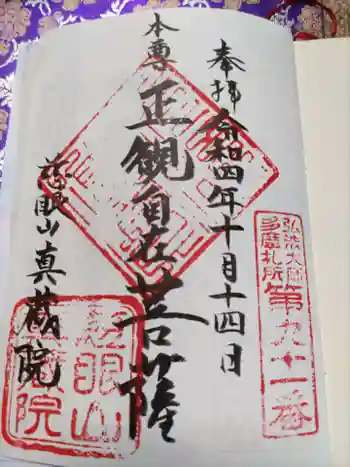 奉拝 令和四年十月十四日
本尊
正観自在菩薩
慈眼山真蔵院
弘法大師
多摩札所
第九十一番
慈眼山
真蔵院